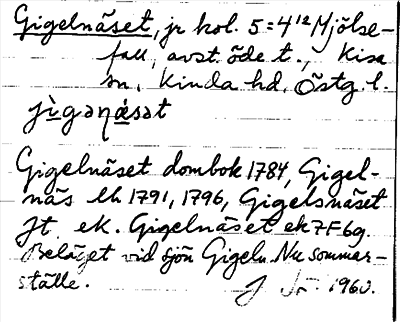 Gigelnäset, jr kol. 5=4¹² Mjölse-
fall, avst. öde t., Kisa
sn, Kinda hd, Östg. l.
jìgənǽsət
Gigelnäset dombok 1784, Gigel-
näs lh 1791, 1796, Gigelsnäset
Jt. ek. Gigelnäset ek 7F 6g.
Beläget vid sjön Gigeln. Nu sommar-
ställe.
1960.